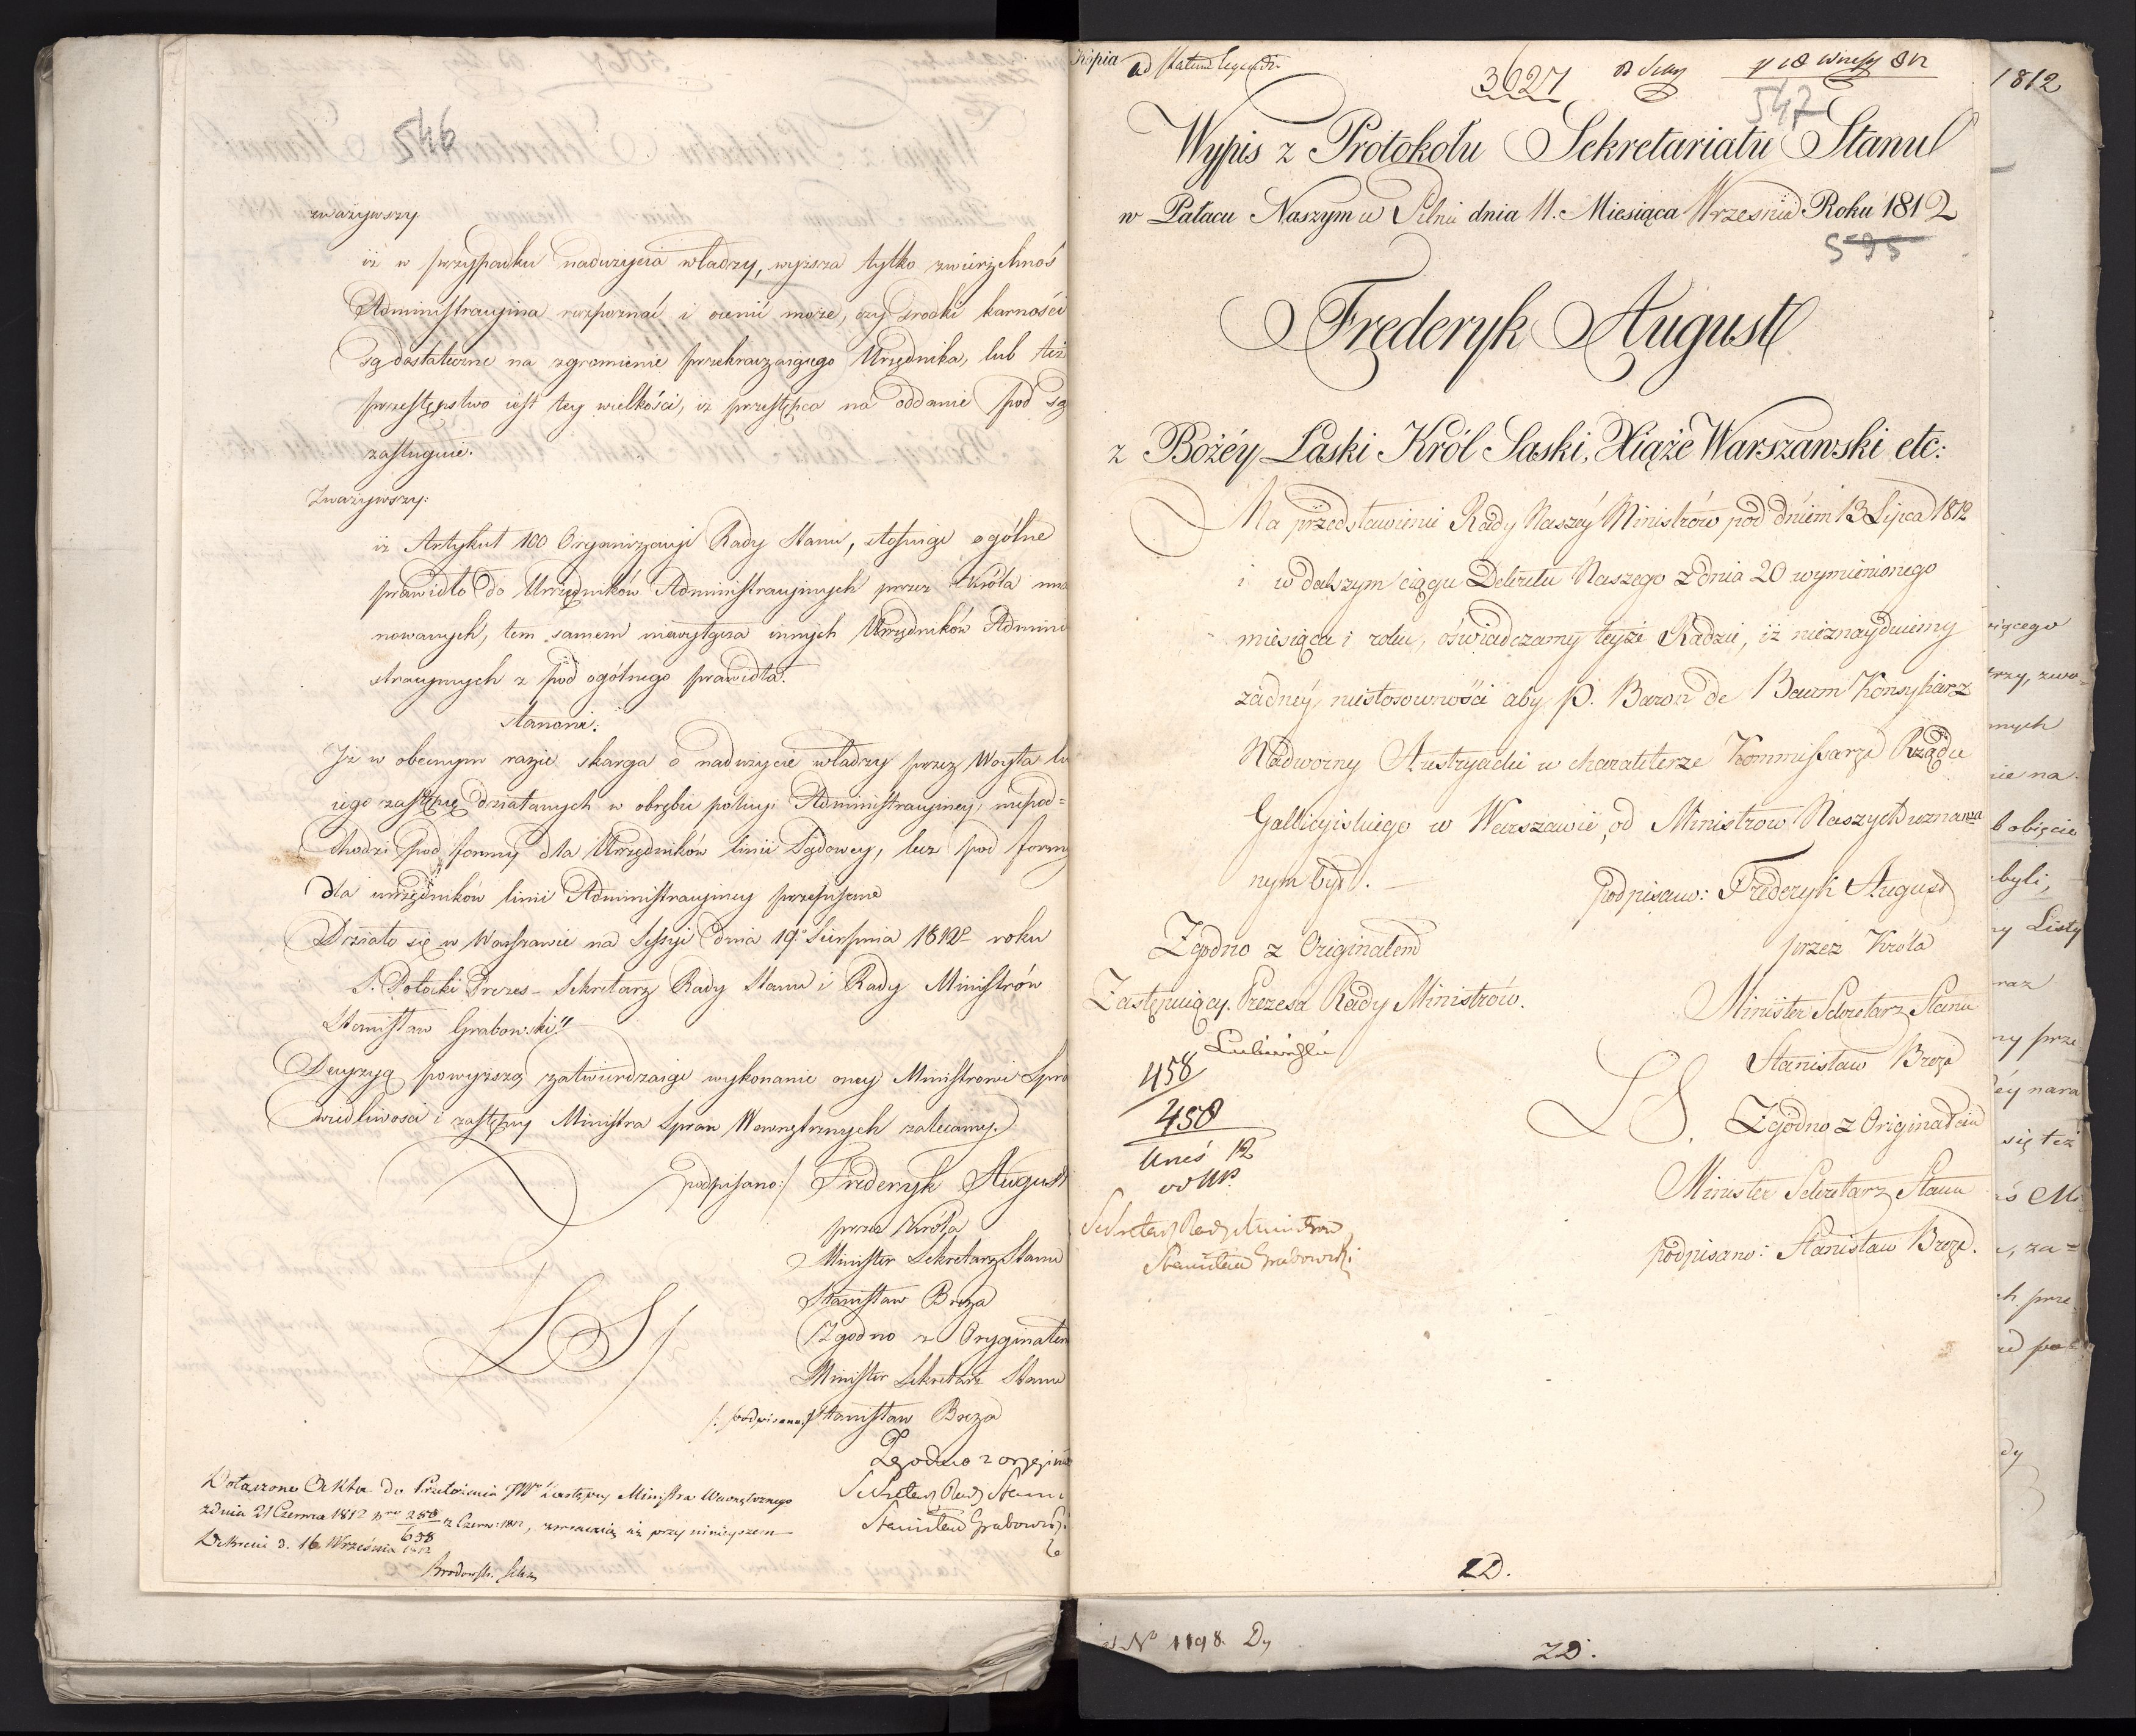 546
zważywszy
iż w przypadku nadużycia władzy, wyższa tylko zwierzchnoś
Administracyina rozpoznać i ocenić może, czy środki karności
są dostateczne na zgromienie przekraczaiącego Urzędnika, lub też
przestępstwo iest tey wielkości, iż przestępca na oddanie pod są
zasługuie.
Zważywszy:
iż Artykuł 100 Organizacyi Rady Stanu, stosuiąc ogólne
prawidło do Urzędników Administracyinych przez Króla mia
nowanych, tem samem niewyłącza innych Urzędników Admini
stracyinych z pod ogólnego prawidła.
Stanowi:
Iż w obecnym razie skarga o nadużycie władzy przez Woyta lu
iego zastępcę działanych w obrębie policyi Administracyiney, niepod=
chodzi pod formy dla Urzędników linii Sądowey, lecz pod formy
dla urzędników linii Administracyiney przepisane
Działo się w Warszawie na Sessyi dnia 19. Sierpnia 1812 roku
S. Potocki Prezes - Sekretarz Rady Stanu i Rady Ministrów
Stanisław Grabowski
Decyzyą powyższą zatwierdzaiąc wykonanie oney Ministrowi Spra
wiedliwości i zastępcy Ministra Spraw Wewnętrznych zalecamy.
podpisano:/ Frideryk August
przez Króla
Minister Sekretarz Stanu
Stanisław Breza
LS
Zgodno z Oryginałem
Minister Sekretarz Stanu
/: podpisano:/ Stanisław Breza
Zgodno z oryginał
Sekretarz Rady Stanu
Stanisław Grabowski
Dołączone Akta do Przełożenia JW Zastępcy Ministra Wewnętrznego
z dnia 21 Czerwca 1812 z Czerw: 1812, zwracaią się przy ninieyszem
Dekrecie d. 16 Września 1812
Brodowski
Kopia
3627
y 18 Wrześ 812
547
Wypis z Protokołu Sekretariatu Stanu
w Pałacu Naszym w Pilnic dnia 11. Miesiąca Września Roku 1812
595
Frederyk August
z Bożéy Łaski Król Saski, Xiąże Warszawski etc:
Na przedstawienie Rady Naszéy Ministrów pod dniem 13 Lipca 1812
i w dalszym ciągu Dekretu Naszego z dnia 20 wymienionego
miesiąca i roku, oświadczamy teyże Radzie, iż nieznayduiemy
żadnéy niestosowności aby P. Baron de Baum Konsyliarz
Nadworny Austryacki w charakterze Kommissarza Rządu
Gallicyiskiego w Warszawie, od Ministrow Naszych uzna
nym był. —
podpisano: Frederyk August
przez Króla
Minister Sekretarz Stanu
Stanisław Breza
LS.
Zgodno z Originałem
Minister Sekretarz Stanu
podpisano: Stanisław Breza.
Zgodno z Originałem
Zastępuiący Prezesa Rady Ministrów.
Łubieński
458
458
Sekretarz Rady Ministrów
Stanisław Grabowski
2D.
No 1198. Dy
2D.
1812
iącego
rzy, zwo=
nych
ie na
obięcie
byli,
y Listy
raz
ny prze
éy nara
się też
ś Mi
, za=
ch prze
dy